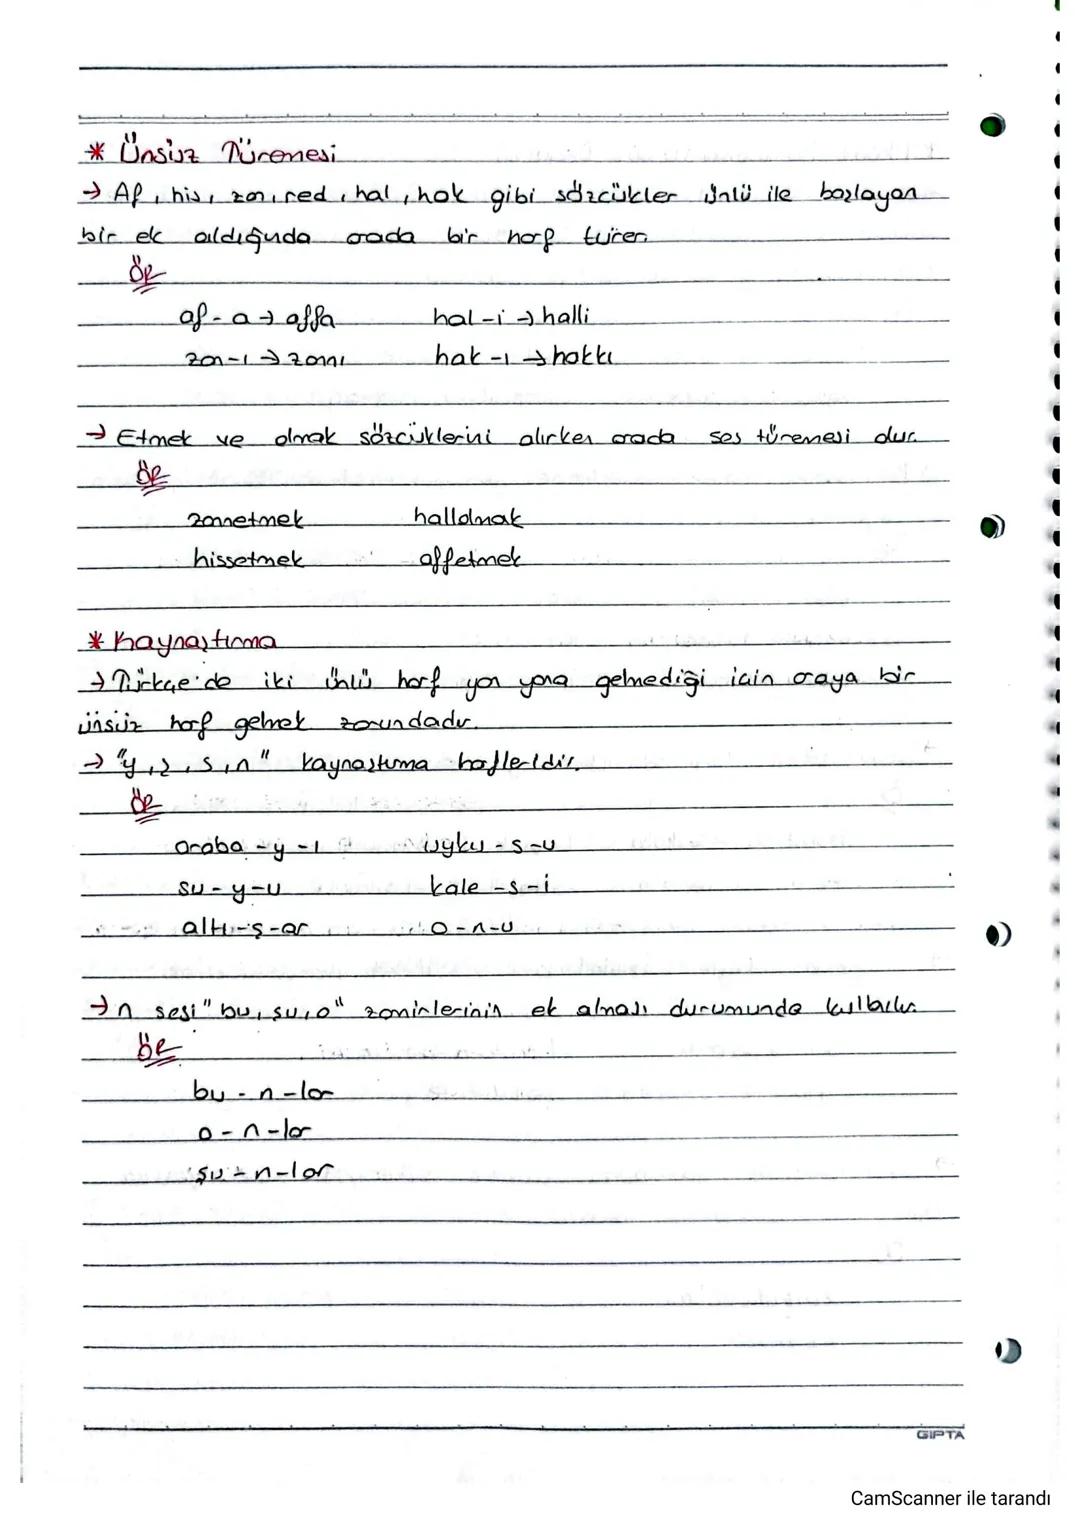 * Ünsüz Türemesi
→ Af, his, zan, red, hal, hak gibi sözcükler ünlü ile başlayan
bir ek aldığında orada bir harf türer.
ÖR
af - a → affa hal - i → halli
zan - ı → zannı hak - ı → hakkı
→ Etmek ve olmak sözcüklerini alırken orada ses türemesi olur.
ÖR
zannetmek hallolmak
hissetmek affetmek
* Kaynaştırma
→ Türkçe'de iki ünlü harf yan yana gelmediği için araya bir
ünsüz harf gelmek zorundadır.
→ "y, ş, s, n" kaynaştırma harfleridir.
ÖR
araba - y - ı uyku - s - u
su - y - u kale - s - i
altı - ş - ar o - n - u
→ n sesi "bu, şu, o" zamirlerinin ek alması durumunda kullanılır.
ÖR
bu - n - lar
o - n - lar
şu - n - lar
GIPTA
CamScanner ile tarandı